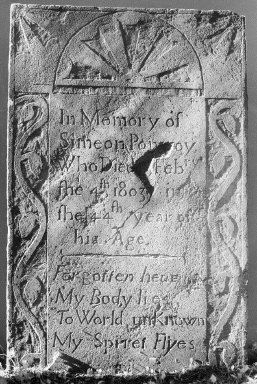 In Memory of
Simeon Pomroy
Who Died Feb'y
the 4th 1803 in
the 44th year of
his Age.
Forgotten here
My Body lies
To World unknown
My Spiret Flyes